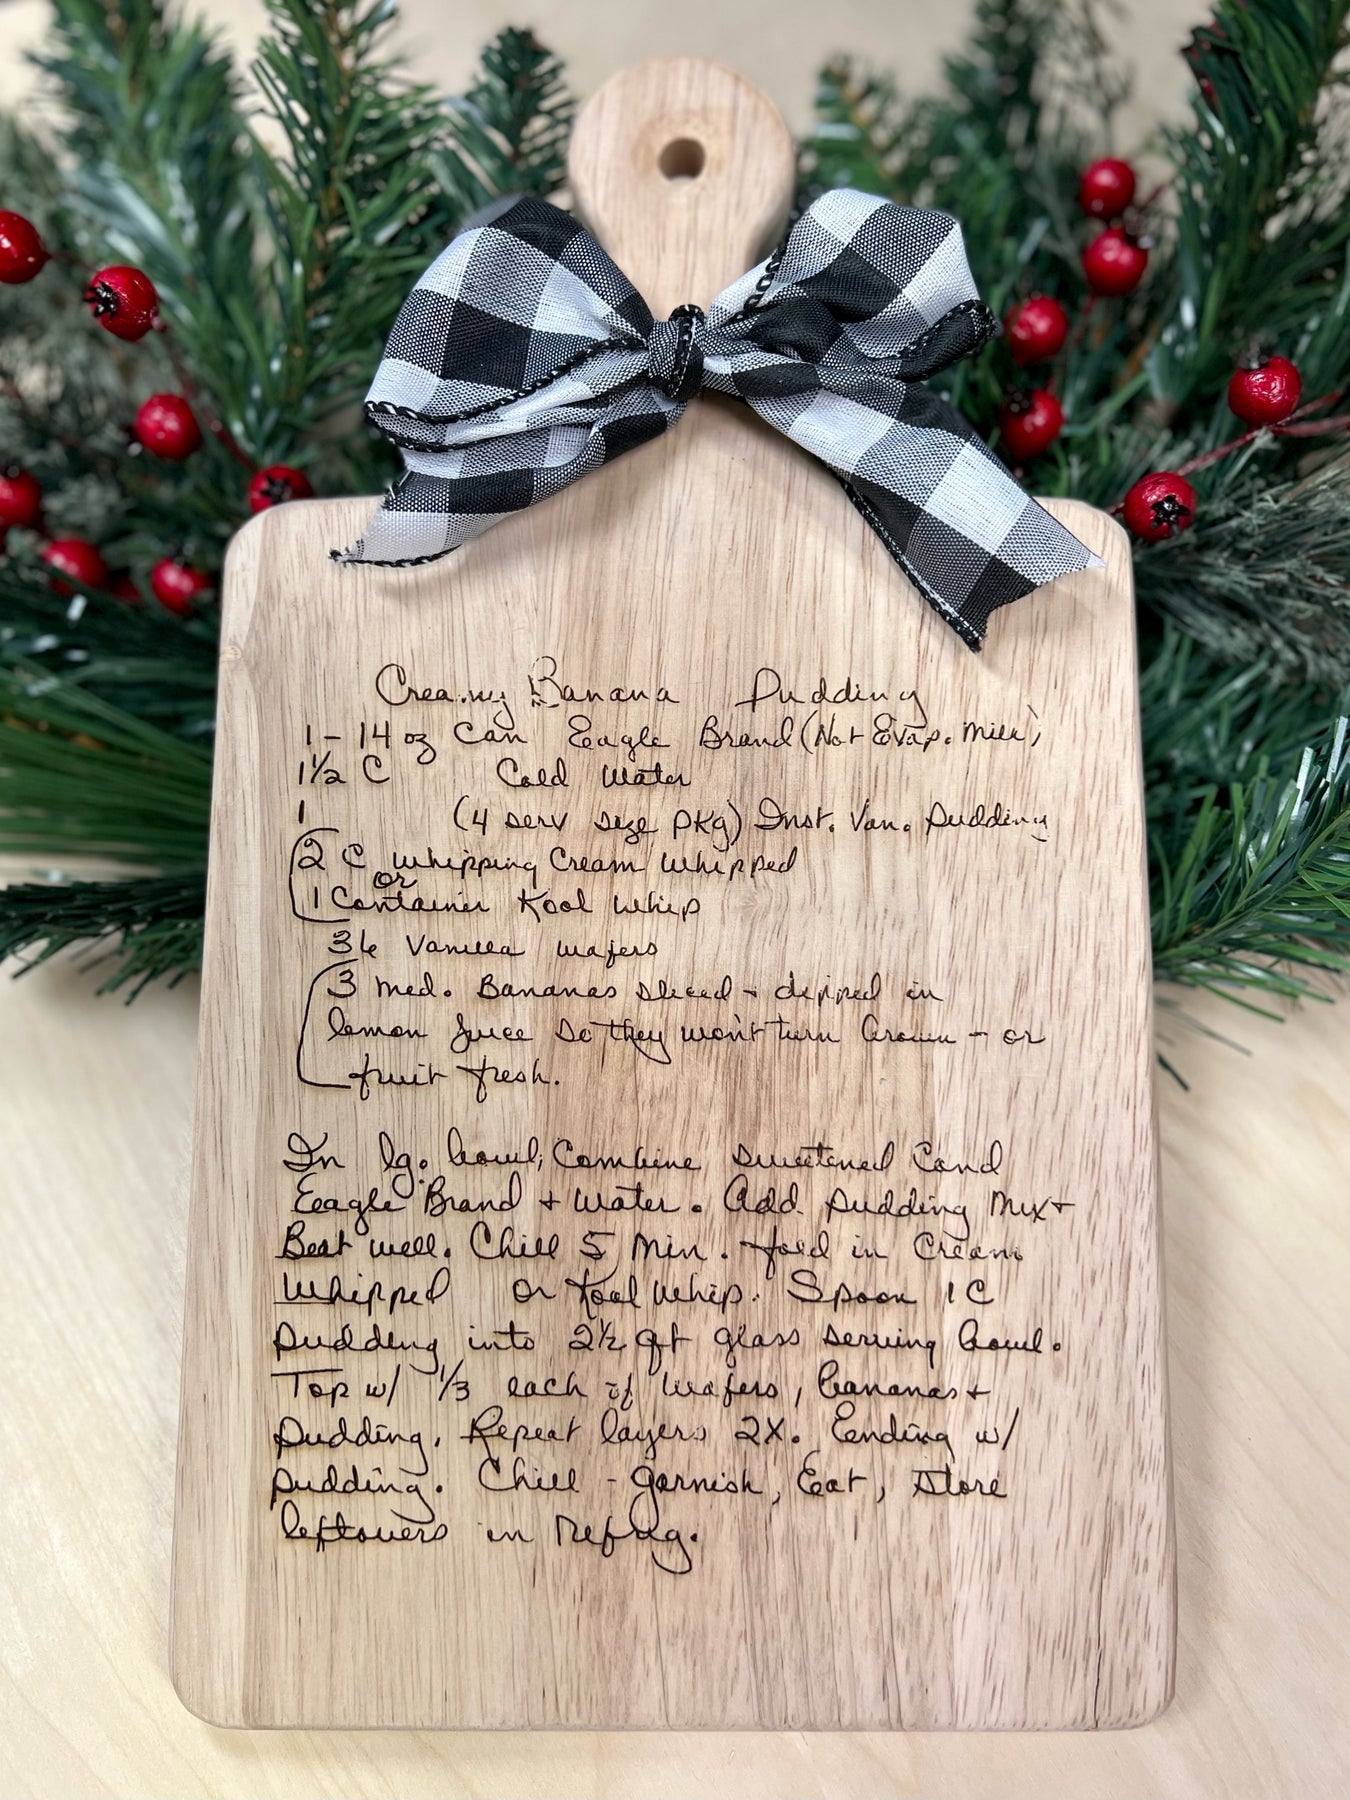 Creamy Banana Pudding
1 - 14 oz Can Eagle Brand (Not Evap. Milk)
1 1/2 C Cold Water
1 (4 serv size pkg) Inst. Van. Pudding
2 C Whipping Cream Whipped
or
1 Container Kool Whip
36 Vanilla Wafers
3 med. Bananas sliced + dipped in
lemon juice so they won't turn brown - or
fruit fresh.
In lg. bowl, Combine sweetened Cond
Eagle Brand + Water. Add pudding Mix +
Beat well. Chill 5 Min. fold in Cream
Whipped or Kool Whip. Spoon 1 C
pudding into 2 1/2 qt glass serving bowl.
Top w/ 1/3 each of wafers, bananas +
pudding. Repeat layers 2X. Ending w/
pudding. Chill - garnish, Eat, store
leftovers in refrig.